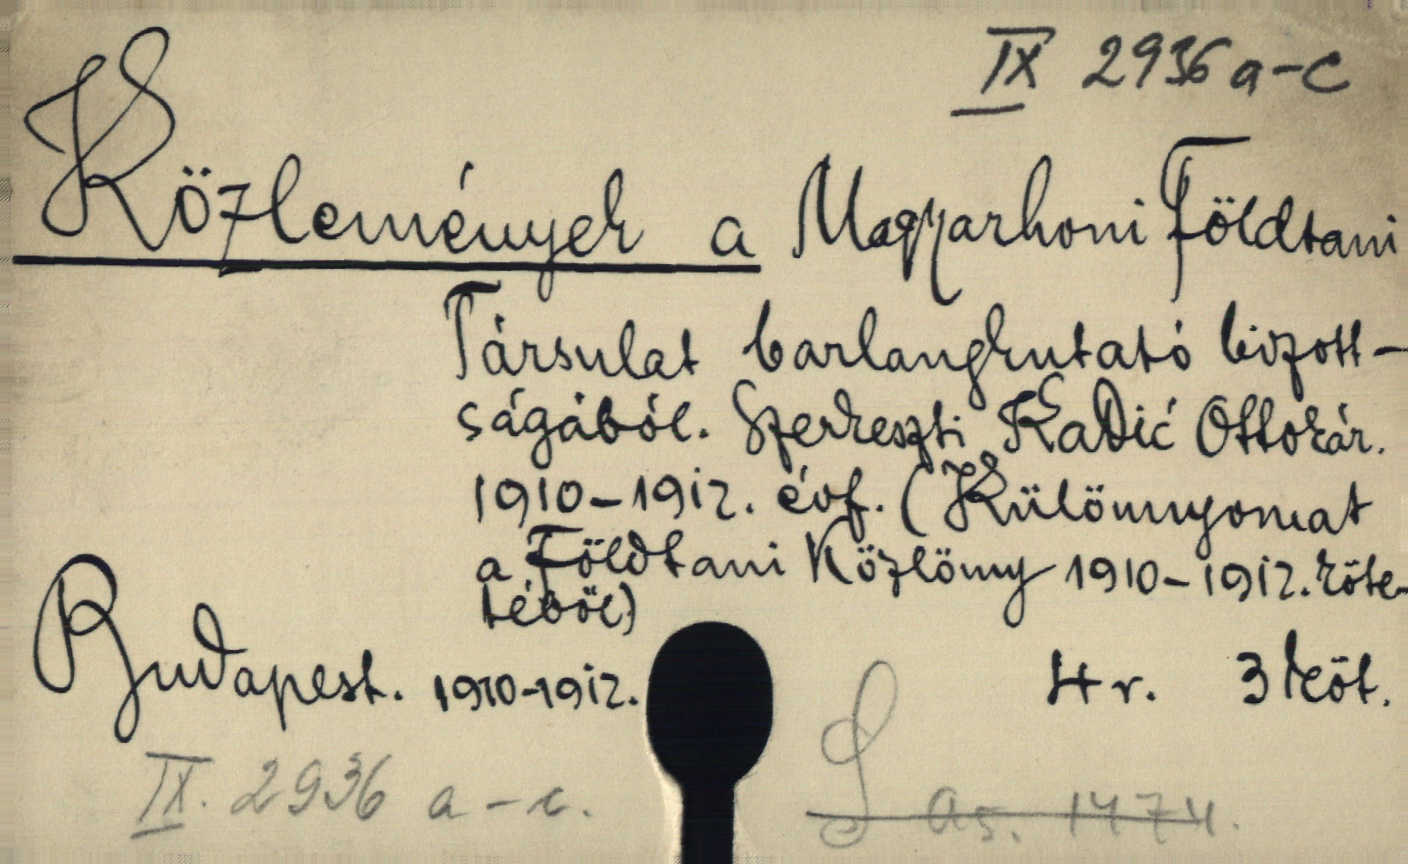 IX 2936 a-c
Közlemények a Magyarhoni Földtani
Társulat barlangkutató bizott-
ságából. Szerkeszti Kadić Ottokár.
1910-1912. évf. (Különnyomat
a Földtani Közlöny 1910-1912. köte-
téből)
Budapest. 1910-1912. 4r. 3 köt.
IX. 2936 a-c.
1474.